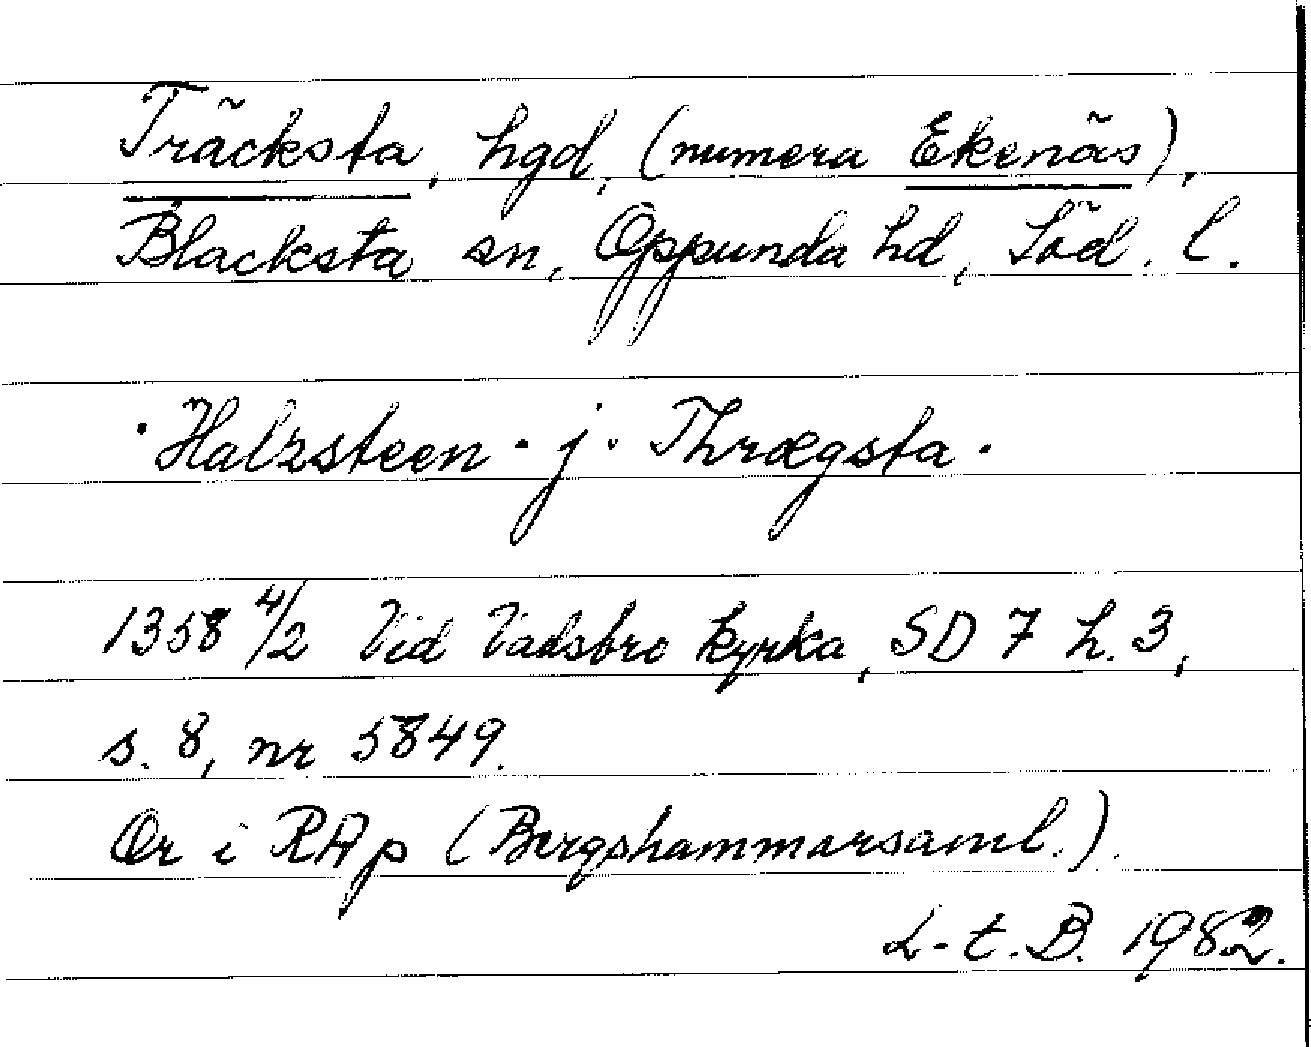 Träcksta, hgd, (numera Ekenäs),
Blacksta sn, Oppunda hd, Söd. l.
· Halzsteen · j · Thrægsta ·
1358 4/2 Vid Vadsbro kyrka, SD 7 h. 3,
s. 8, nr 5849.
Or i RAp (Bergshammarsaml.).
L-t. B. 1982.